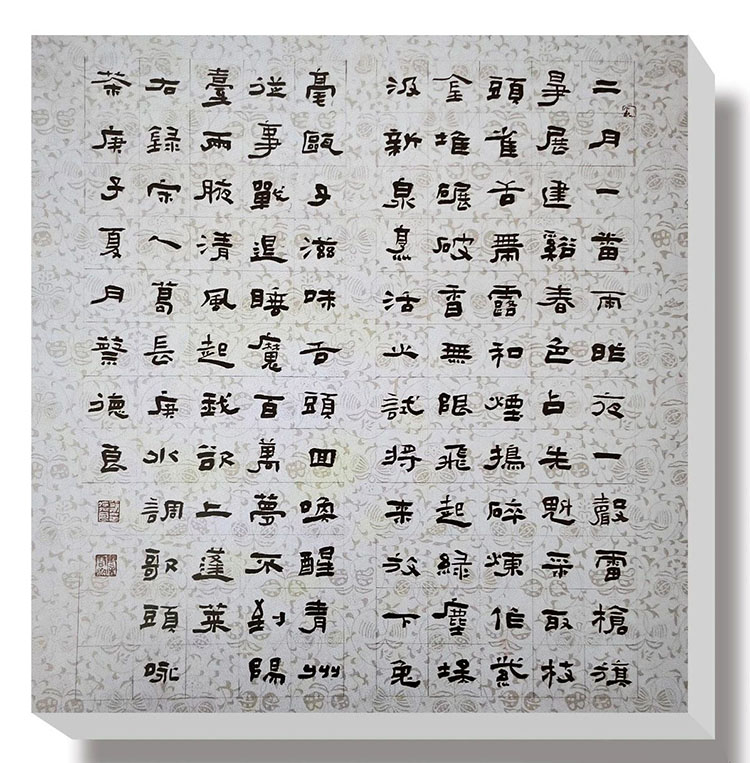 二月一番雨昨夜一聲雷槍旗
爭展建谿春色占先魁采取枝
頭雀舌帶露和煙搗碎煉作紫
金堆碾破香無限飛起綠塵埃
汲新泉烹活火試將來放下兔
毫甌子滋味舌頭回喚醒青州
從事戰退睡魔百萬夢不到陽
臺兩腋清風起我欲上蓬萊
右錄宋人葛長庚水調歌頭咏
茶庚子夏月蔡德良